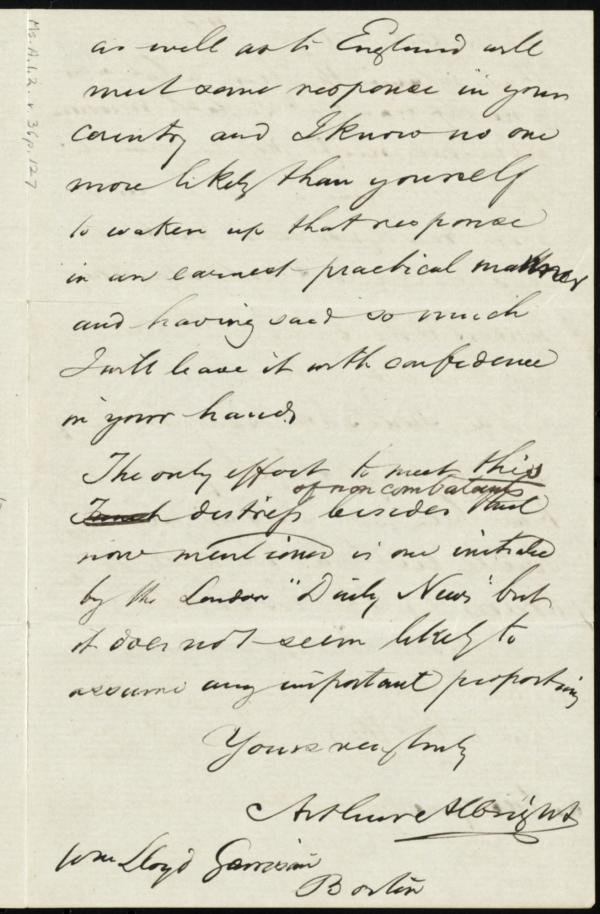 as well as to England will
meet some response in your
country and I know no one
more likely than yourself
to waken up that response
in an earnest practical manner
and having said so much
I will leave it with confidence
in your hands
The only effort to meet this
of non combatants
French distress besides that
now mentioned is one initiated
by the London "Daily News" but
it does not seem likely to
assume any important proportions
Yours very truly
Arthur Albright
Wm Lloyd Garrison
Boston
Ms. A.1.2. v. 36 p. 127